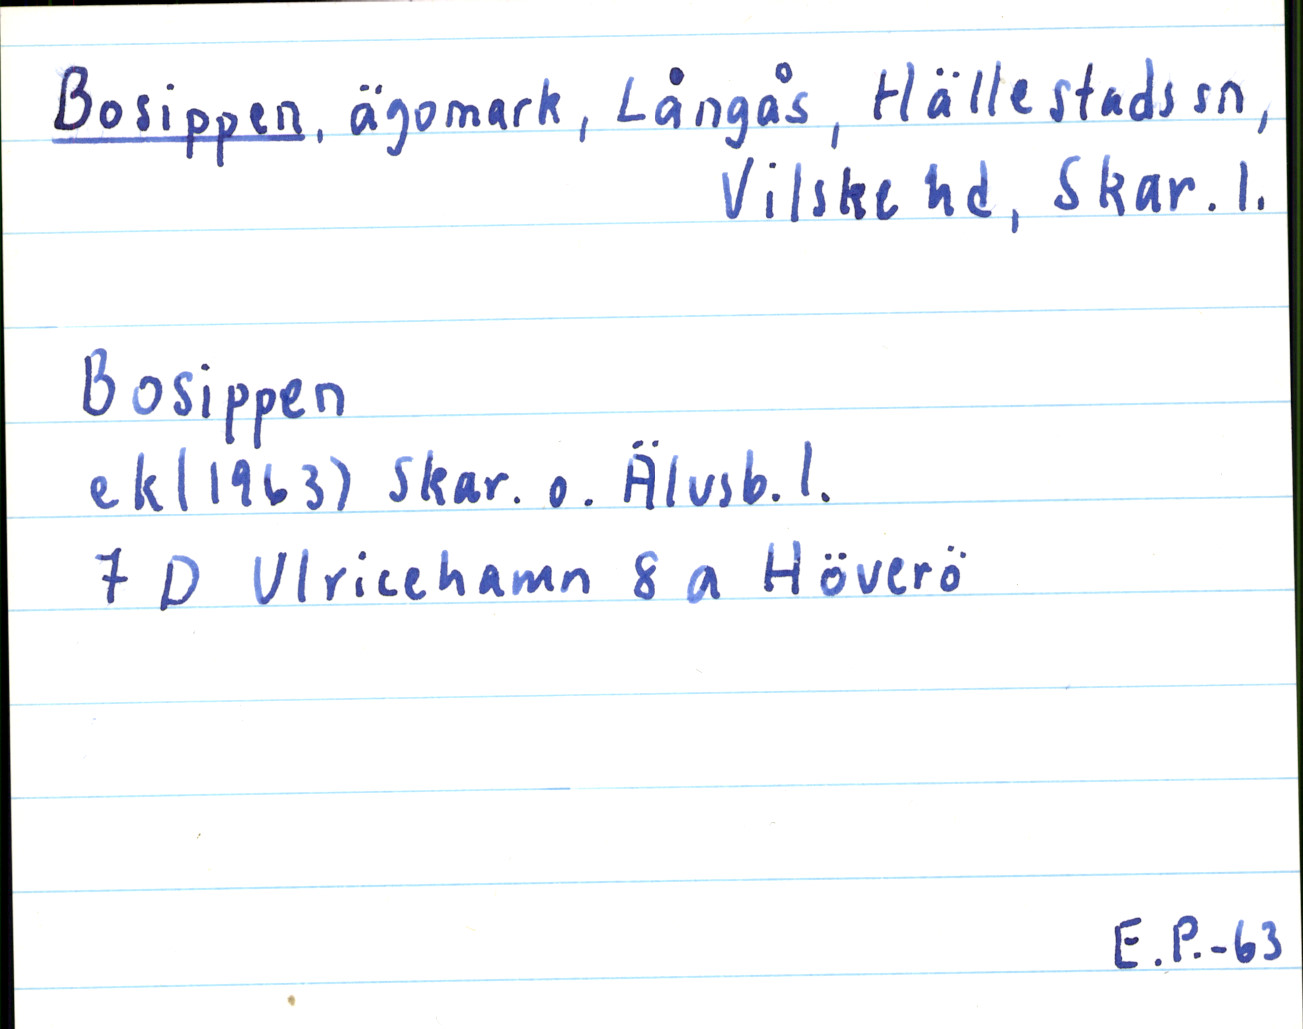 Bosippen, ägomark, Långås, Hällestads sn,
Vilske hd, Skar. l.
Bosippen
ek (1963) Skar. o. Älvsb. l.
7 D Ulricehamn 8 a Höverö
E.P.-63